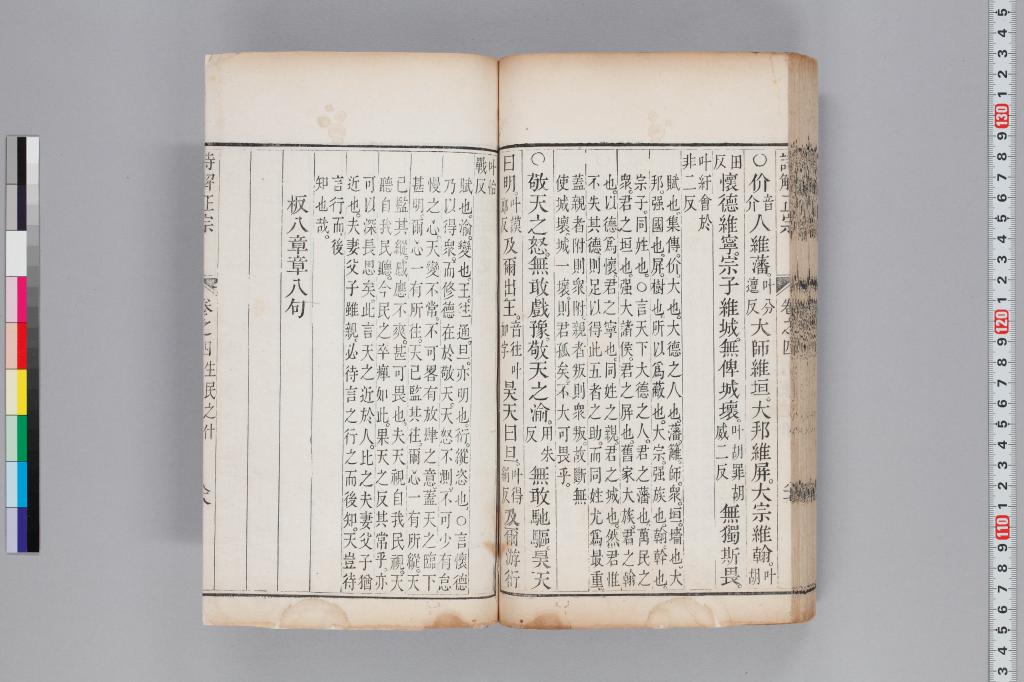 ○价音介人維藩叶分邅反大師維垣大邦維屏大宗維翰叶胡
田反懷德維寧宗子維城無俾城壞叶胡罪胡威二反無獨斯畏
叶紆會於非二反
賦也集傳价大也大德之人也藩籬師衆垣墻也大
邦强國也屏樹也所以爲蔽也大宗强族也翰幹也
宗子同姓也○言天下大德之人君之藩也萬民之
衆君之垣也强大諸侯君之屏也舊家大族君之翰
也以德爲懷君之寧也同姓之親君之城也然君惟
不失其德則足以得此五者之助而同姓尤爲最重
蓋親者附則衆附親者叛則衆叛故斷無
使城壞城一壞則君孤矣不大可畏乎
○敬天之怒無敢戲豫敬天之渝用朱反無敢馳驅昊天
曰明叶謨郎反及爾出王音往叶如字昊天曰旦叶得絹反及爾游衍
叶怡戰反
賦也渝變也王往通旦亦明也衍縱恣也○言懷德
乃以得衆而修德在於敬天天怒不測不可少有怠
慢之心天變不常不可畧有放肆之意蓋天之臨下
甚明爾心一有所往天已監其往爾心一有所縱天
已監其縱感應不爽甚可畏也夫天視自我民視天
聽自我民聽今民之卒瘅如此果天之反其常乎亦
可以深長思矣此言天之近於人比之夫妻父子猶
近也夫妻父子雖親必待言之行之而後知天豈待
言行而後
知也哉
板八章章八句
詩解正宗
卷之四生民之什